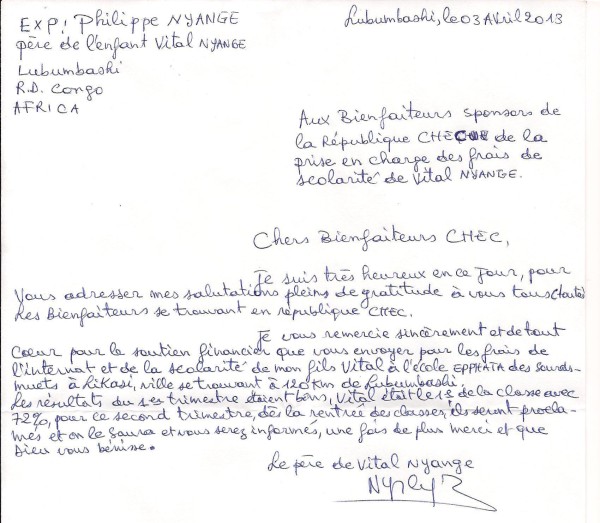 EXP! Philippe NYANGE
père de l'enfant Vital NYANGE
Lubumbashi
R.D. Congo
AFRICA
Lubumbashi, le 03 Avril 2013
Aux Bienfaiteurs sponsors de
la République CHEC de la
prise en charge des frais de
scolarité de Vital NYANGE.
Chers Bienfaiteurs CHEC,
Je suis très heureux en ce jour, pour
Vous adresser mes salutations pleins de gratitude à vous tous (toutes)
les Bienfaiteurs se trouvant en république CHEC.
Je vous remercie sincèrement et de tout
Cœur pour le soutien financier que vous envoyer pour les frais de
l'internat et de la scolarité de mon fils Vital à l'école EPPHATA des sourds-
muets à Likasi, ville se trouvant à 120 Km de Lubumbashi.
Les résultats du 1er trimestre étaient bons, Vital était le de la classe avec
72%, pour ce second trimestre, dès la rentrée des classes, ils seront procla-
més et on le saura et vous serez informés, une fois de plus merci et que
Dieu vous bénisse.
Le père de Vital Nyange